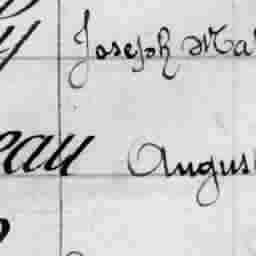 y Joseph Ma
eau August